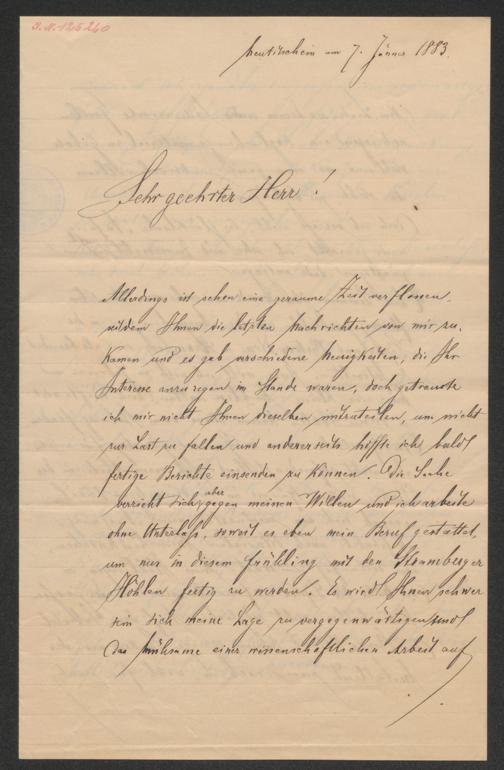 I.N. 125260
Neutitschein am 7. Jänner 1883.
Sehr geehrter Herr!
Allerdings ist schon eine geraume Zeit verflossen,
seitdem Ihnen die letzten Nachrichten von mir zu-
kamen und es gab verschiedene Neuigkeiten, die Ihr
Interesse anzuregen im Stande waren, doch getraute
ich mir nicht Ihnen dieselben mitzuteilen, um nicht
zur Last zu fallen und andererseits hoffte ich bald
fertige Berichte einsenden zu können. Die Sache
verzieht sich aber gegen meinen Willen und ich arbeite
ohne Unterlaß, soweit es eben mein Beruf gestattet,
um nur in diesem Frühling mit den Stramberger
Höhlen fertig zu werden. Es wird Ihnen schwer
sein sich meine Lage zu vergegenwärtigen und
das Mühsame einer wissenschaftlichen Arbeit auf